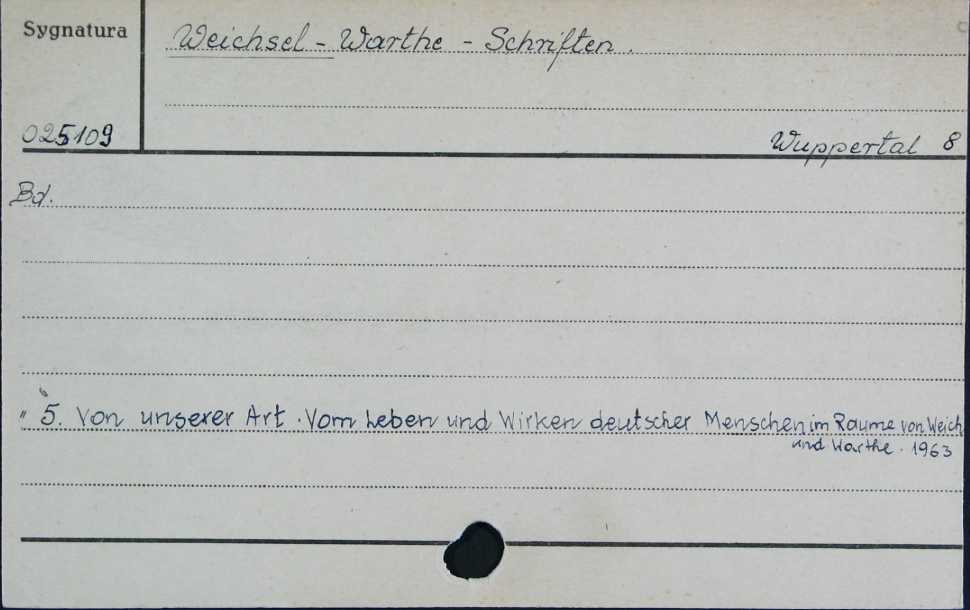 Sygnatura
Weichsel - Warthe - Schriften.
025109
Wuppertal 8
Bd.
" 5. Von unserer Art. Vom Leben und Wirken deutscher Menschen im Raume von Weich
und Warthe. 1963